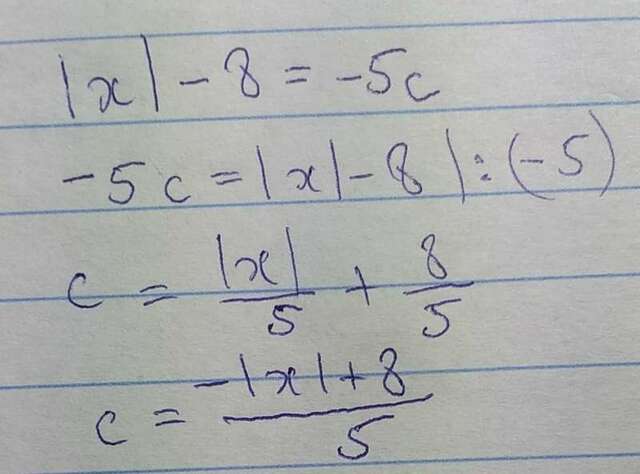 |x| - 8 = -5c
-5c = |x| - 8 | : (-5)
c = |x|/5 + 8/5
c = (-|x| + 8)/5